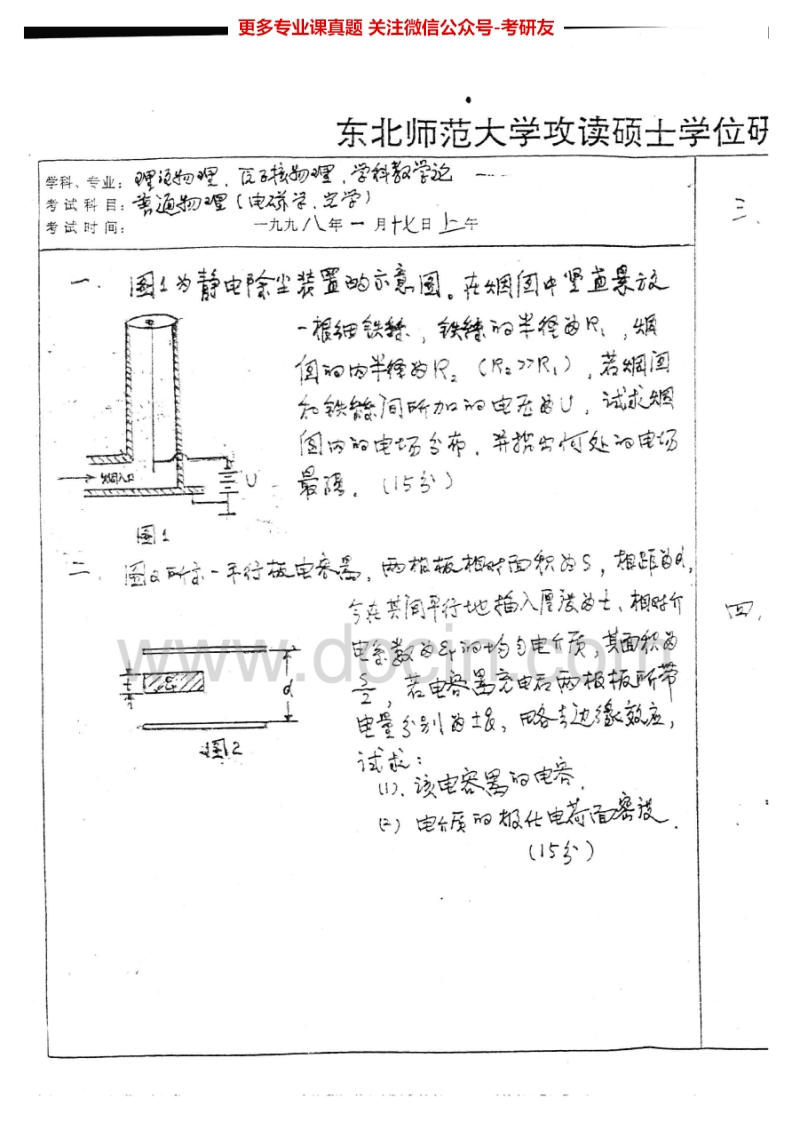 更多专业课真题 关注微信公众号-考研友
东北师范大学攻读硕士学位研
学科、专业:理论物理、原子核物理、学科教学论
考试科目:普通物理(电磁学、光学)
考试时间: 一九九八年一月十七日上午
一、图1为静电除尘装置的示意图。在烟囱中竖直悬放
一根细铁丝,铁丝的半径为R₁,烟
囱的内半径为R₂(R₂>>R₁),若烟囱
和铁丝间所加的电压为U,试求烟
囱内的电场分布,并指出何处的电场
最强。(15分)
烟入口
U
图1
二、图2所示一平行板电容器,两极板相对面积为S,相距为d,
今在其间平行地插入厚度为t、相对介
电系数为εr的均匀电介质,其面积为
S/2,若电容器充电后两极板所带
电量分别为±Q,略去边缘效应,
试求:
(1)、该电容器的电容.
(2) 电介质的极化电荷面密度.
(15分)
t
εr
d
图2
三、
四、
www.docin.com